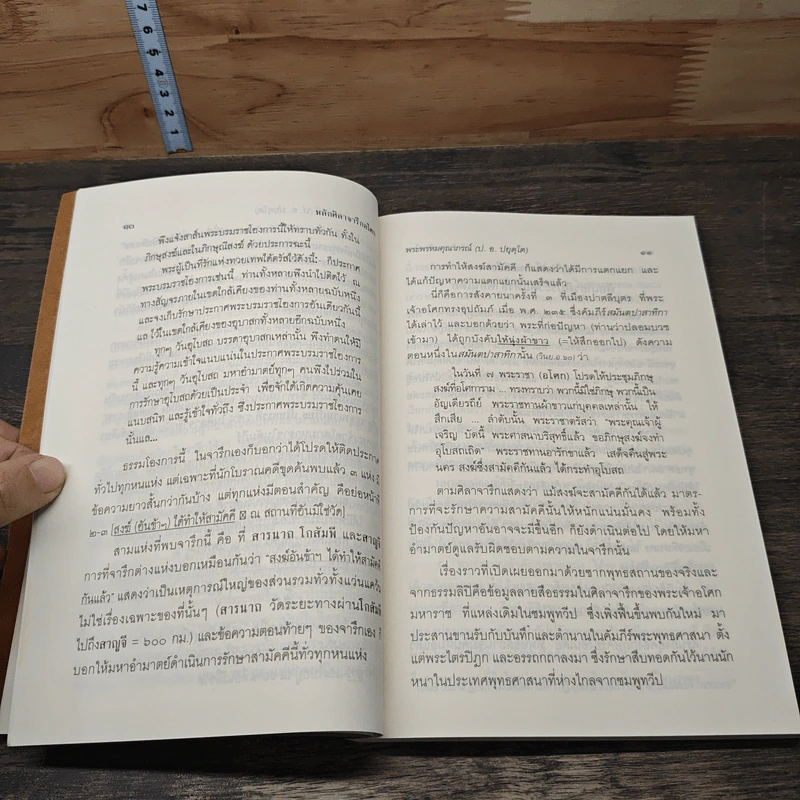 ๑๓
หลักศิลาจารึกอโศก
พึงแจ้งสาส์นพระบรมราชโองการนี้ให้ทราบทั่วกัน ทั้งใน
ภิกษุสงฆ์และในภิกษุณีสงฆ์ ด้วยประการฉะนี้
พระผู้เป็นที่รักแห่งทวยเทพได้ตรัสไว้ดังนี้:- ก็ประกาศ
พระบรมราชโองการเช่นนี้ ท่านทั้งหลายพึงนำไปติดไว้ ณ
ทางสัญจรภายในเขตใกล้เคียงของท่านทั้งหลายฉบับหนึ่ง
และจงเก็บรักษาประกาศพระบรมราชโองการอันเดียวกันนี้
แล ไว้ในเขตใกล้เคียงของอุบาสกทั้งหลายอีกฉบับหนึ่ง
ทุกๆ วันอุโบสถ บรรดาอุบาสกเหล่านั้น พึงทำตนให้มี
ความรู้ความเข้าใจแนบแน่นในประกาศพระบรมราชโองการ
นี้ และทุกๆ วันอุโบสถ มหาอำมาตย์ทุกๆ คนพึงไปร่วมใน
การรักษาอุโบสถด้วยเป็นประจำ เพื่อจักได้เกิดความคุ้นเคย
แนบสนิท และรู้เข้าใจทั่วถึง ซึ่งประกาศพระบรมราชโองการ
นั้นแล...
ธรรมโองการนี้ ในจารึกเองก็บอกว่าได้โปรดให้ติดประกาศ
ทั่วไปทุกหนแห่ง แต่เฉพาะที่นักโบราณคดีขุดค้นพบแล้ว ๓ แห่ง มี
ข้อความยาวสั้นกว่ากันบ้าง แต่ทุกแห่งมีตอนสำคัญ คือย่อหน้าที่
๒-๓ [สงฆ์ (อันข้าฯ) ได้ทำให้สามัคคี ณ สถานที่อันมิใช่วัด]
สามแห่งที่พบจารึกนี้ คือ ที่ สารนาถ โกสัมพี และสาญจี
การที่จารึกต่างแห่งบอกเหมือนกันว่า “สงฆ์อันข้าฯ ได้ทำให้สามัคคี
กันแล้ว” แสดงว่าเป็นเหตุการณ์ใหญ่ของส่วนรวมทั่วทั้งแว่นแคว้น
ไม่ใช่เรื่องเฉพาะของที่นั้นๆ (สารนาถ วัดระยะทางผ่านโกสัมพี
ไปถึงสาญจี = ๖๐๐ กม.) และข้อความตอนท้ายๆ ของจารึกเอง ก็
บอกให้มหาอำมาตย์ดำเนินการรักษาสามัคคีนี้ทั่วทุกหนแห่ง
พระพรหมคุณาภรณ์ (ป. อ. ปยุตฺโต)
การทำให้สงฆ์สามัคคี ก็แสดงว่าได้มีการแตกแยก และ
ได้แก้ปัญหาความแตกแยกนั้นเสร็จแล้ว
นี่ก็คือการสังคายนาครั้งที่ ๓ ที่เมืองปาตลีบุตร ที่พระ
เจ้าอโศกทรงอุปถัมภ์ เมื่อ พ.ศ. ๒๓๕ ซึ่งคัมภีร์สมันตปาสาทิกา
ได้เล่าไว้ และบอกด้วยว่า พระที่ก่อปัญหา (ท่านว่าปลอมบวช
เข้ามา) ได้ถูกบังคับให้นุ่งผ้าขาว (=ให้สึกออกไป) ดังความ
ตอนหนึ่งในสมันตปาสาทิกานั้น (วินย.อ.๖๐) ว่า
ในวันที่ ๗ พระราชา (อโศก) โปรดให้ประชุมภิกษุ
สงฆ์ที่อโศการาม ... ทรงทราบว่า พวกนี้มิใช่ภิกษุ พวกนี้เป็น
อัญเดียรถีย์ พระราชทานผ้าขาวแก่บุคคลเหล่านั้น ให้
สึกเสีย ... ลำดับนั้น พระราชาตรัสว่า “พระคุณเจ้าผู้
เจริญ บัดนี้ พระศาสนาบริสุทธิ์แล้ว ขอภิกษุสงฆ์จงทำ
อุโบสถเถิด” พระราชทานอารักขาแล้ว เสด็จคืนสู่พระ
นคร สงฆ์ซึ่งสามัคคีกันแล้ว ได้กระทำอุโบสถ
ตามศิลาจารึกแสดงว่า แม้สงฆ์จะสามัคคีกันได้แล้ว มาตร-
การที่จะรักษาความสามัคคีนั้นให้หนักแน่นมั่นคง พร้อมทั้ง
ป้องกันปัญหาอันอาจจะมีขึ้นอีก ก็ยังดำเนินต่อไป โดยให้มหา
อำมาตย์ดูแลรับผิดชอบตามความในจารึกนั้น
เรื่องราวที่เปิดเผยออกมาด้วยซากพุทธสถานของจริงและ
จากธรรมลิปิคือข้อมูลลายสือธรรมในศิลาจารึกของพระเจ้าอโศก
มหาราช ที่แหล่งเดิมในชมพูทวีป ซึ่งเพิ่งฟื้นขึ้นพบกันใหม่ มา
ประสานขานรับกับบันทึกและตำนานในคัมภีร์พระพุทธศาสนา ตั้ง
แต่พระไตรปิฎก และอรรถกถาลงมา ซึ่งรักษาสืบทอดกันไว้นานนัก
หนาในประเทศพุทธศาสนาที่ห่างไกลจากชมพูทวีป
7
6
5
4
3
2
1